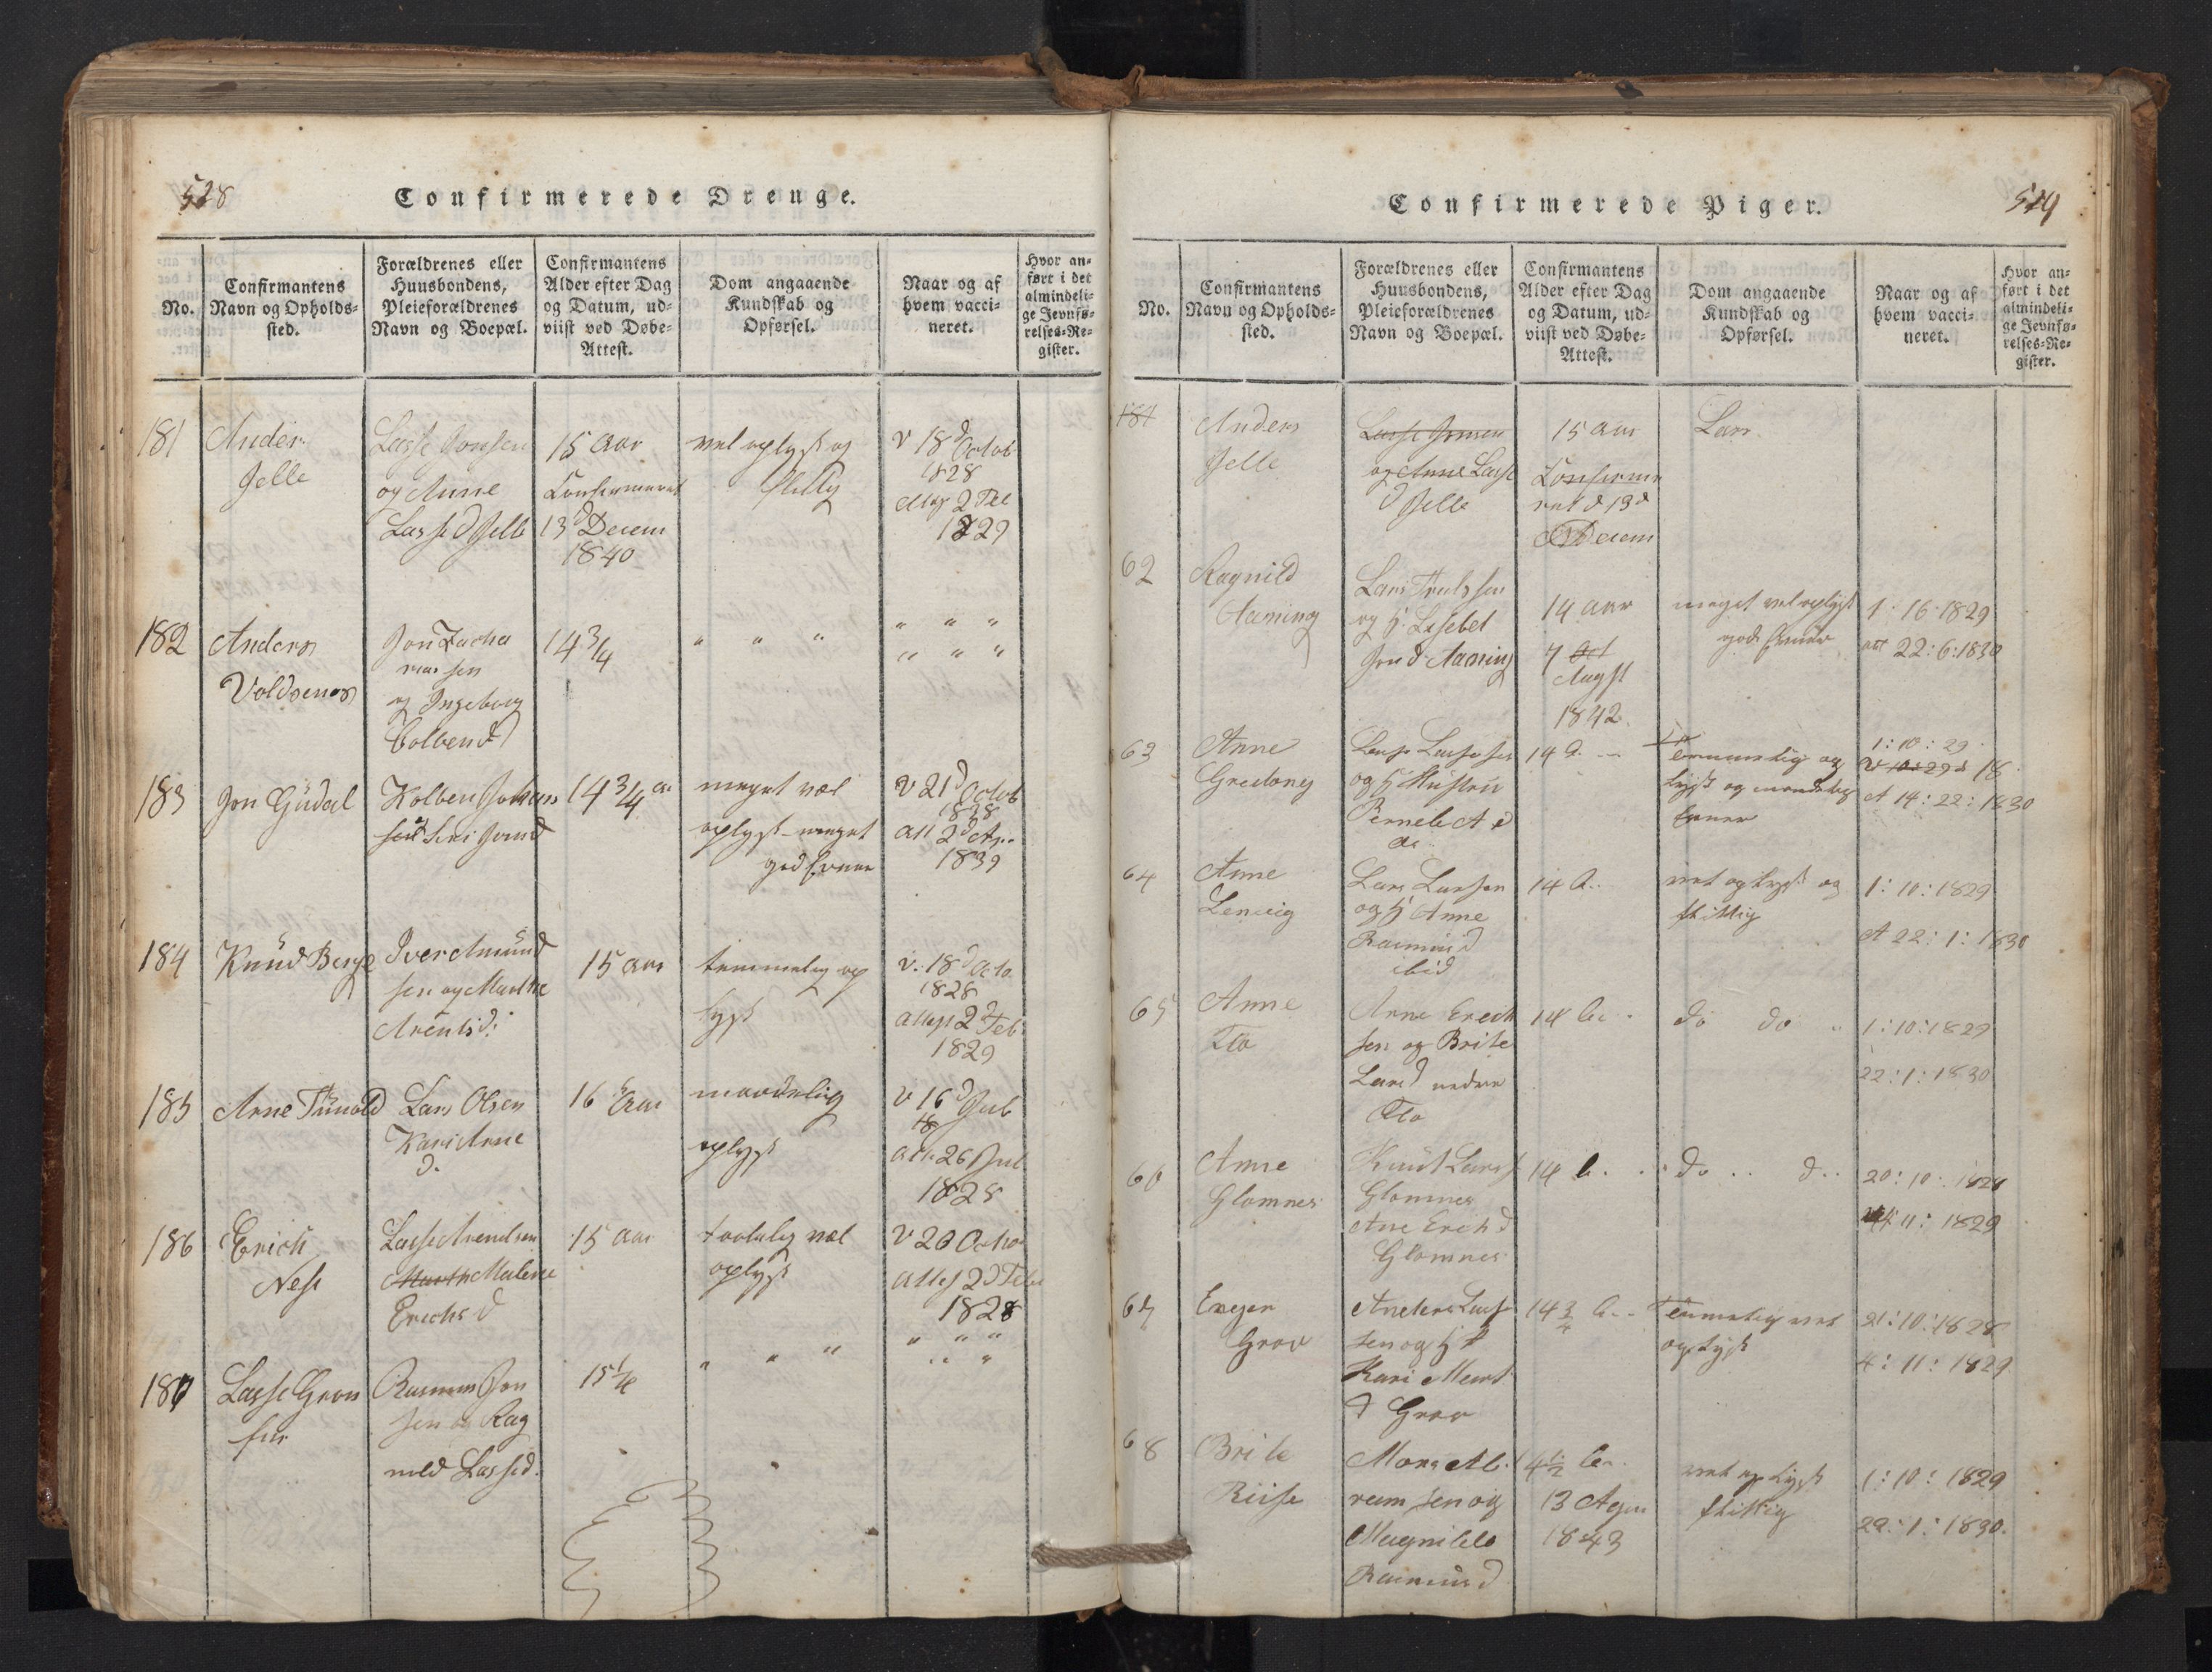 528
Confirmerede Drenge.
No.
Confirmantens
Navn og Opholds-
sted.
Forældrenes eller
Huusbondens,
Pleieforældrenes
Navn og Boepæl.
Confirmantens
Alder efter Dag
og Datum, ud-
viist ved Døbe-
Attest.
Dom angaaende
Kundskab og
Opførsel.
Naar og af
hvem vacci-
neret.
Hvor an-
ført i det
almindeli-
ge Jevnfø-
relses-Re-
gister.
181
Anders
Jelle
Lasse Jonsen
og Anne
Lasse d Jelle
15 Aar
Confirmeret
13 d Decem
1840
vel oplyst og
flittig
v 18 d Octob
1828
Att 2 Feb
1829
182
Anders
Voldsenes
Jon Zacha
riassen
og Ingeborg
Colbend
14 3/4
" " "
" " "
" " "
183
Jon Gudal
Kolben Johans
sen Siri Jons d
14 3/4 a
meget vel
oplyst meget
god Evner
v 21 d Octob
1828
Att 2 d Ap
1839
184
Knud Berge
Iver Amund
sen og Marthe
Arents d:
15 Aar
temmelig op
lyst
v. 18 d Octo
1828
Attest 2 d Feb
1829
185
Arne Tunold
Lars Olsen
Kari Arne
d.
16 Aar
maadelig
oplyst
v 16 d Jul
18
Att 26 Jul
1828
186
Erich
Ness
Lasse Arentsen
Marth Malene
Erichs d
15 Aar
taalelig vel
oplyst
v 20 Octo
Attest 2 d Feb
1828
187
Lasse Gron
fur
Rasmus Jon
sen og Rag
nild Lasse d.
15 1/4
" " "
" " "
" "
529
Confirmerede Piger.
No.
Confirmantens
Navn og Opholds-
sted.
Forældrenes eller
Huusbondens,
Pleieforældrenes
Navn og Boepæl.
Confirmantens
Alder efter Dag
og Datum, ud-
viist ved Døbe-
Attest.
Dom angaaende
Kundskab og
Opførsel.
Naar og af
hvem vacci-
neret.
Hvor an-
ført i det
almindeli-
ge Jevnfø-
relses-Re-
gister.
181
Anders
Jelle
Lasse Jonsen
og Anne Lasse
d Jelle
15 Aar
Confirme
ret d 13 d
Decem
Lars
62
Ragnild
Aaning
Lars Truls sen
og h. Lisebet
Jon d Aaning
14 Aar
7 Oct
Augst
1842
meget vel oplyst
gode Evner
1: 16: 1829
att 22: 6: 1830
63
Anne
Gredung
Lasse Lassesen
og h Hustru
Pernele A d
14 A.
Temmelig op
lyst og maadelig
Evner
1: 10: 29
v 10: 29 18
A 14: 22: 1830
64
Anne
Lenvig
Lars Larsen
og h Anne
Rasmus d
ibid
14 A.
vel oplyst og
flittig
1: 10: 1829
A 22: 1: 1830
65
Anne
Flo
Arne Erich
sen og Brite
Lars d nedre
Flo
14 A.
do do
1: 10: 1829
22: 1: 1830
66
Anne
Glomnes
Knut Lars
Glomnes
Ane Erich d
Glomnes
14 A.
do d
20: 10: 1828
4: 11: 1829
67
Grov
Anders Lasse
sen og h
Kari Mart
d Grov
14 3/4 A.
Temmelig vel
oplyst
21: 10: 1828
4: 11: 1829
68
Brite
Riise
Mons Ab
ram sen og
Magnilde
Rasmus d
14 1/2 A.
13 Agu
1843
vel oplyst
flittig
1: 10: 1829
22: 1: 1830.